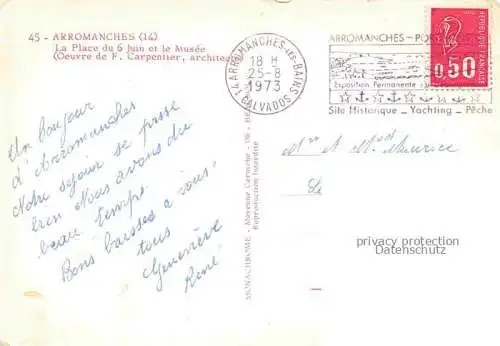 45 - ARROMANCHES (14)
La Place du 6 Juin et le Musée
(Oeuvre de F. Carpentier, architecte
14 ARROMANCHES-LES-BAINS
18 H
25-8
1973
CALVADOS
ARROMANCHES - PORT
Exposition Permanente
Site Historique _ Yachting _ Pêche
RÉPUBLIQUE FRANÇAISE
0,50
Un bonjour
d'Arromanches
Notre séjour se passe
bien Nous avons du
beau temps.
Bons baisers à vous
tous
Geneviève
René
Mr et Mme Maurice
Le
MONACHROME
Reproduction Interdite
privacy protection
Datenschutz